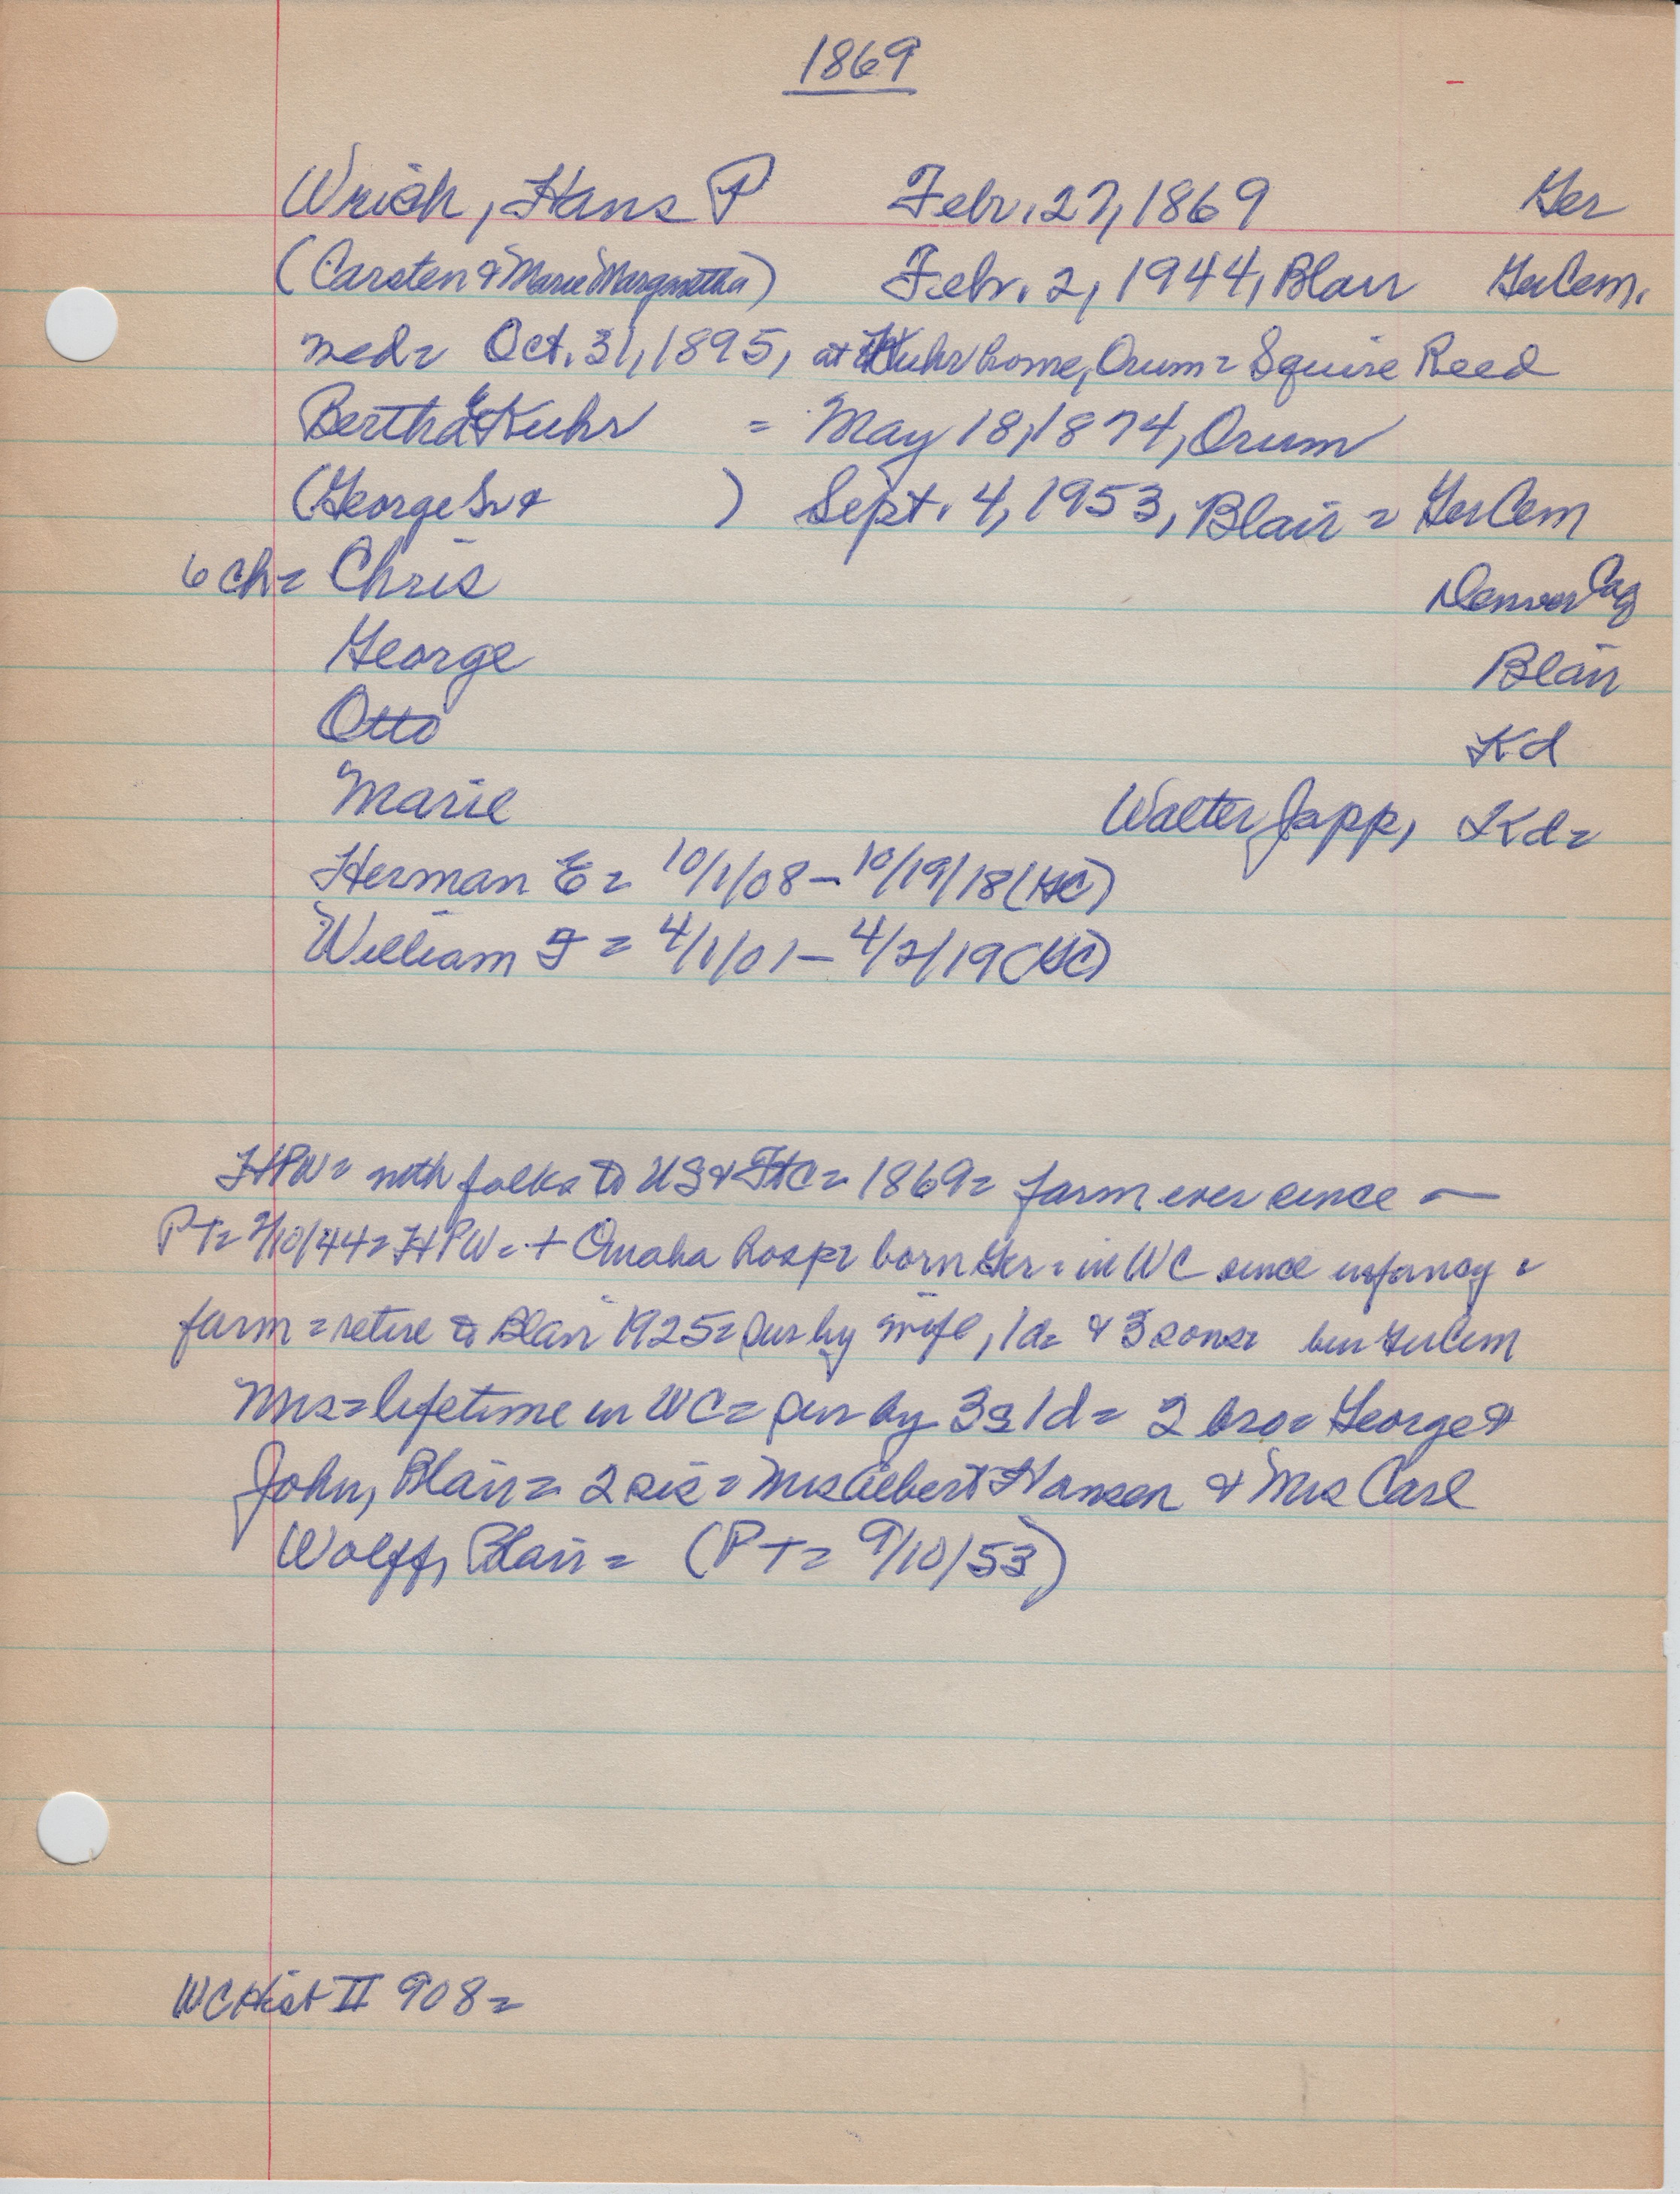 1869
Wrich, Hans P Febr. 27, 1869 Ger
(Carsten & Marie Margaretha) Febr. 2, 1944, Blair GerCem.
med= Oct. 31, 1895, at Kuhr home, Orum = Squire Reed
Bertha Kuhr = May 18, 1874, Orum
(George Sr & ) Sept. 4, 1953, Blair = GerCem
6 ch= Chris Denver
George Blair
Otto Kd
Marie Walter Japp, Kd=
Herman E= 10/1/08 - 10/19/18 (GC)
William F = 4/1/01 - 4/2/19 (GC)
HPW= with folks to US & = 1869= farm ever since —
PT= 2/10/44= HPW= + Omaha hosp= born Ger= in WC since infancy =
farm = retire to Blair 1925= sur by wife, 1d= & 3 sons= bur GerCem
Mrs= lifetime in WC= sur by 3s 1d= 2 bro= George &
John, Blair= 2 sis= Mrs Albert Hansen & Mrs Carl
Wolff, Blair= (PT= 9/10/53)
WCHist II 908=